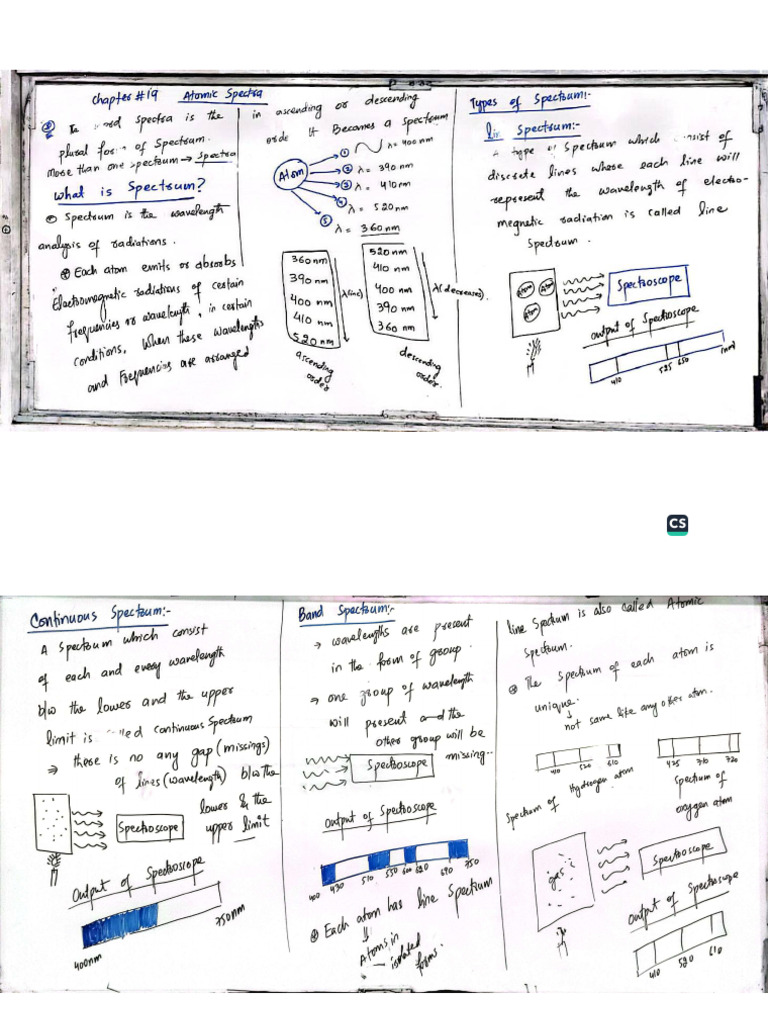 Chapter #19 Atomic Spectra
spectra is the
plural form of Spectrum.
More than one spectrum → Spectra
What is Spectrum?
Spectrum is the wavelength
analysis of radiations.
Each atom emits or absorbs
Electromagnetic radiations of certain
frequencies or wavelength, in certain
conditions, When these wavelengths
and Frequencies are arranged
in ascending or descending
orde It Becomes a Spectrum
Atom
① λ = 400 nm
② λ = 390 nm
③ λ = 410 nm
④ λ = 520 nm
⑤ λ = 360 nm
360 nm
390 nm
400 nm
410 nm
520 nm
λ(inc)
ascending
order
520 nm
410 nm
400 nm
390 nm
360 nm
λ(decreases).
descending
order.
Types of Spectrum:-
Spectrum:-
type of Spectrum which consist of
discrete lines where each line will
represent the wavelength of electro-
megnetic radiation is called line
Spectrum.
Atom Atom
Atom
Spectroscope
output of Spectroscope
410 525 650
CS
Continuous Spectrum:-
A Spectrum which consist
of each and every wavelength
b/w the lower and the upper
limit is called Continuous Spectrum
⇒ there is no any gap (missings)
of lines (wavelength) b/w the
lower & the
upper limit
Spectroscope
Output of Spectroscope
400nm 750nm
Band Spectrum:-
→ wavelengths are present
in the form of group.
⇒ one group of wavelength
will present and the
other group will be
missing..
Spectroscope
output of Spectroscope
400 430 510 550 600 620 690 750
Each atom has line Spectrum
Atoms in
isolated
forms.
line Spectrum is also called Atomic
Spectrum.
The Spectrum of each atom is
unique.
not same like any other atom.
410 520 610
Spectrum of Hydrogen atom
425 710 720
Spectrum of
oxygen atom
gas
Spectroscope
output of Spectroscope
410 520 610